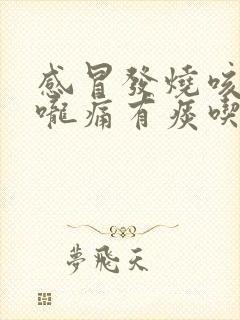 感冒發燒咳
嚨痛有痰喫
夢飛天